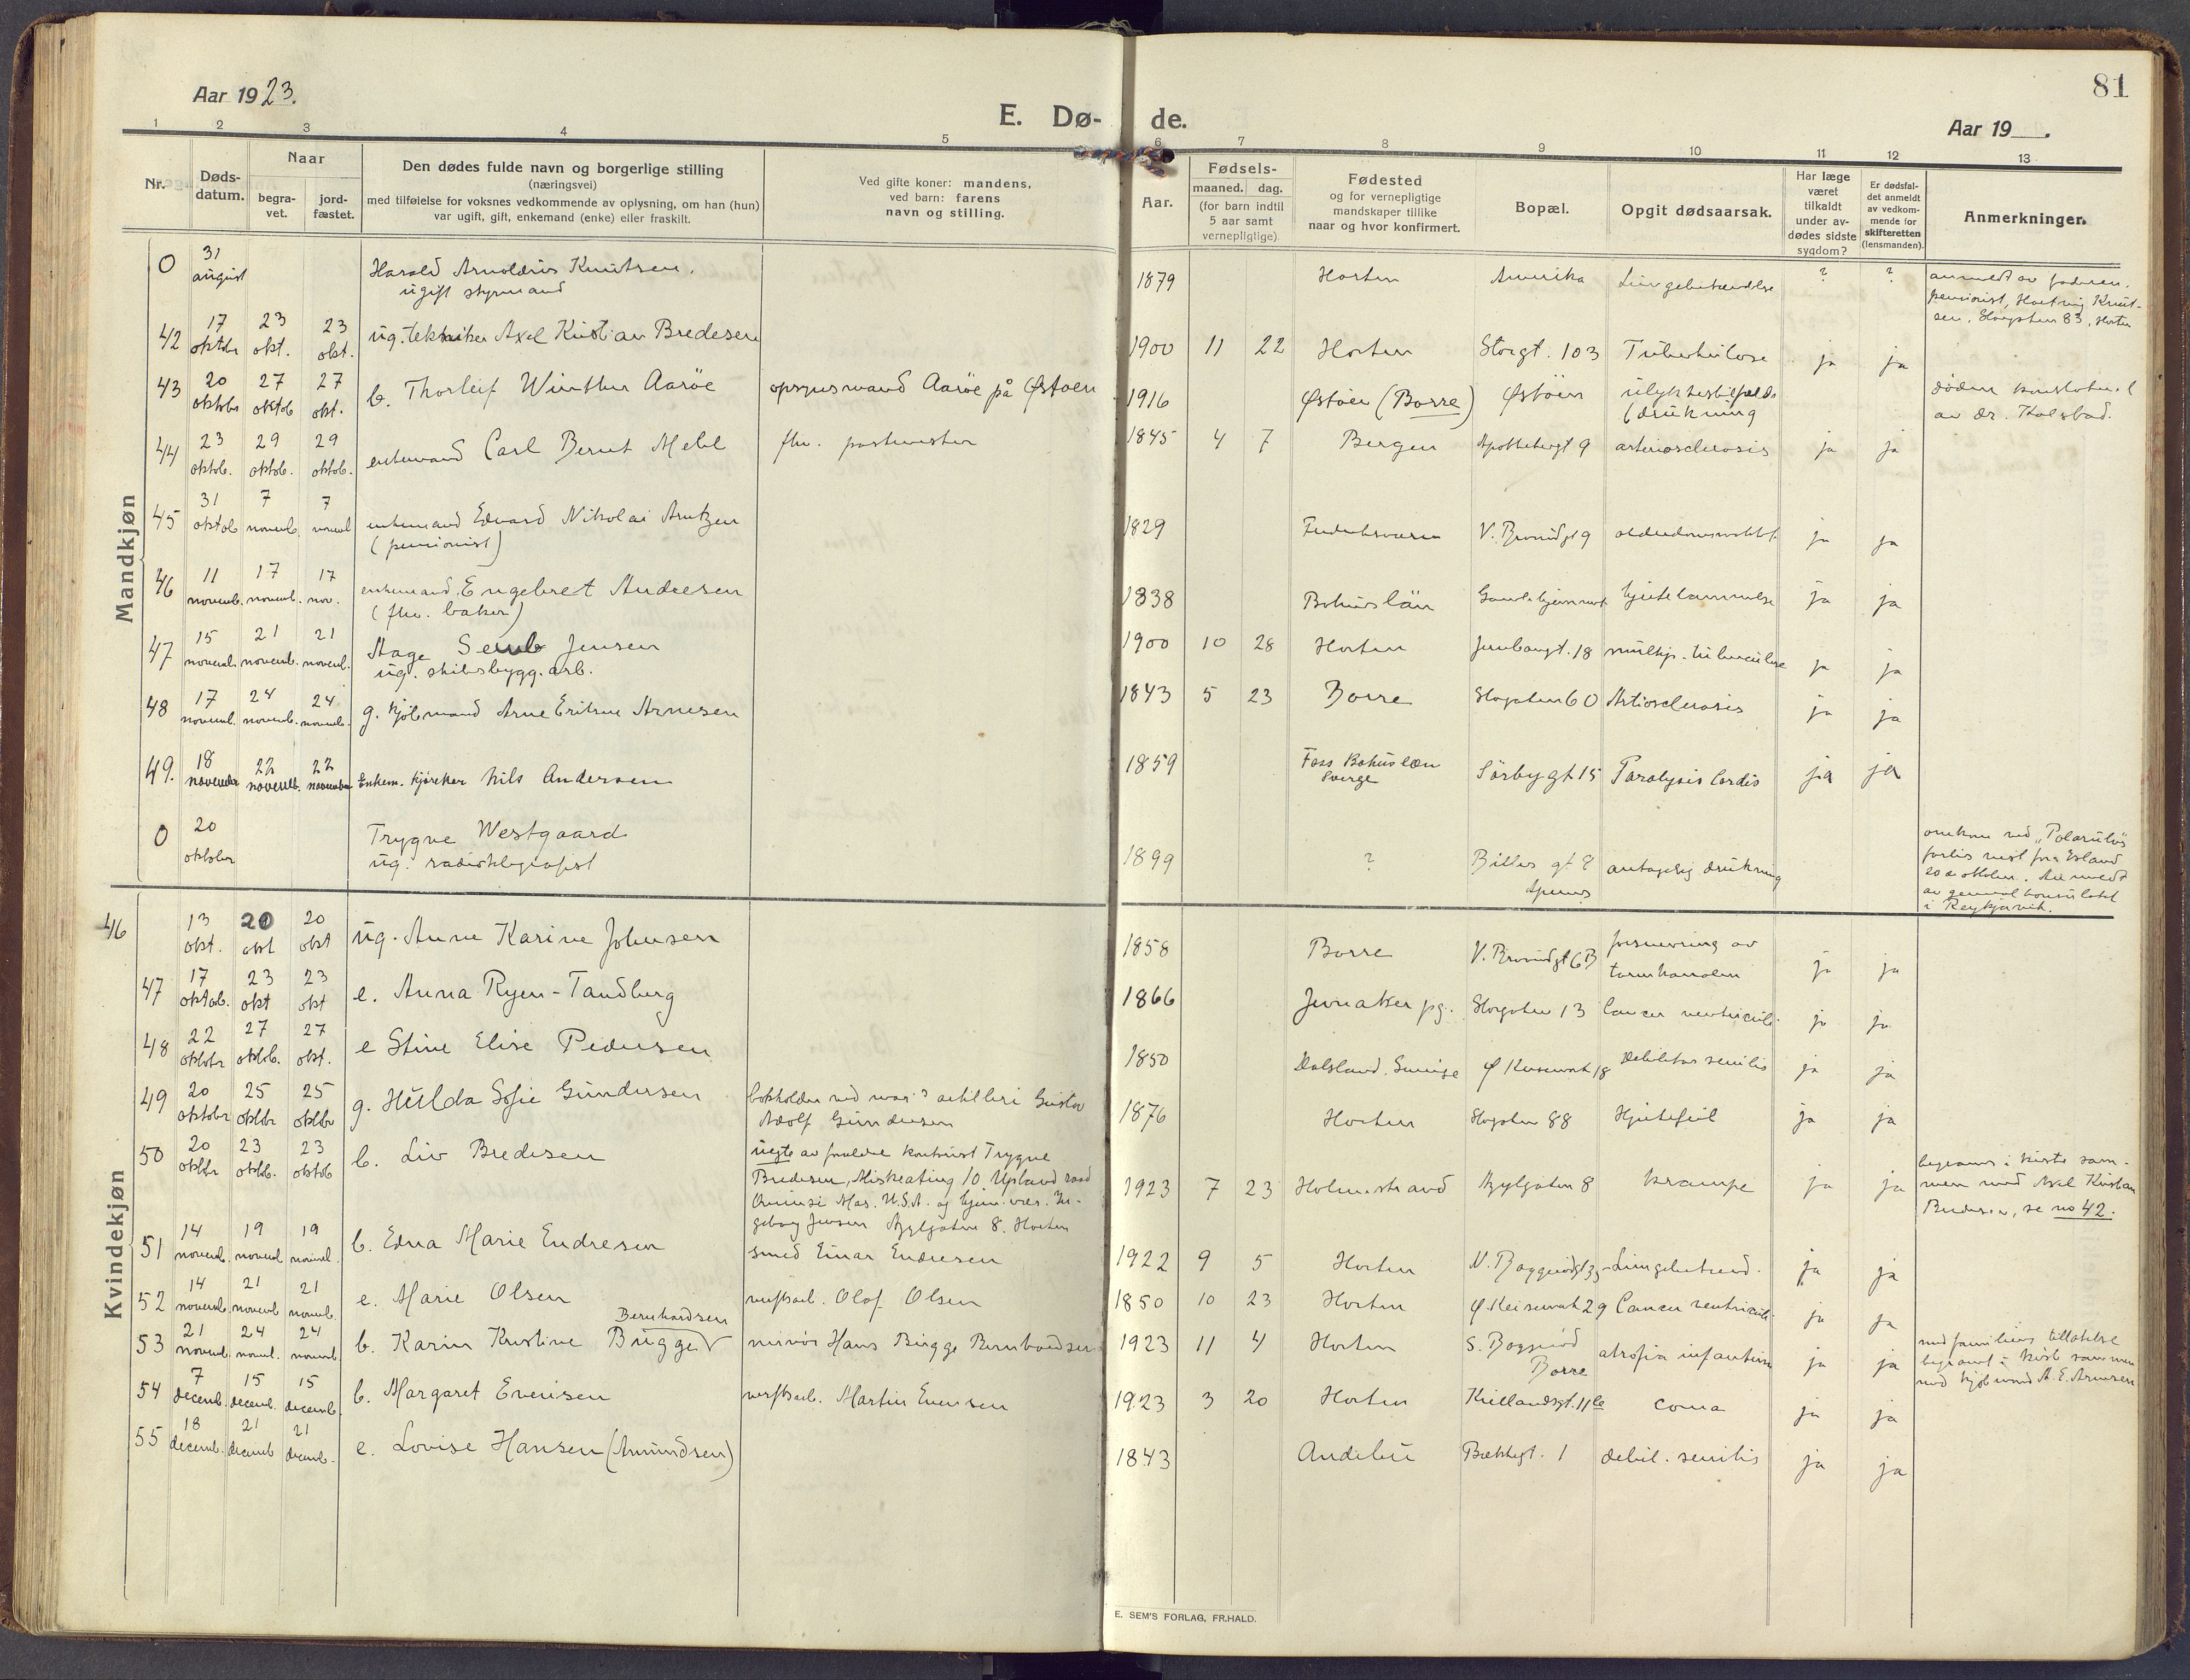 81
Aar 1923.
E. Dø-de.
Aar 19 .
1 2 3 4 5 6 7 8 9 10 11 12 13
Nr.
Døds-
datum.
Naar
begra-
vet.
jord-
fæstet.
Den dødes fulde navn og borgerlige stilling
(næringsvei)
med tilføielse for voksnes vedkommende av oplysning, om han (hun)
var ugift, gift, enkemand (enke) eller fraskilt.
Ved gifte koner: mandens,
ved barn: farens
navn og stilling.
Aar.
Fødsels-
maaned. dag.
(for barn indtil
5 aar samt
vernepligtige).
Fødested
og for vernepligtige
mandskaper tillike
naar og hvor konfirmert.
Bopæl.
Opgit dødsaarsak.
Har læge
været
tilkaldt
under av-
dødes sidste
sygdom?
Er dødsfal-
det anmeldt
av vedkom-
mende for
skifteretten
(lensmanden).
Anmerkninger.
Mandkjøn
0 31 august Harald Arnoldius Knutsen, 1879 Horten Amerika Lungebetændelse ? ? anmeldt av faderen,
ugift styrmand pensionist, Hartvig Knut-
sen, Storgaten 83, Horten
42 17 oktobr 23 okt. 23 okt. ug. tekniker Axel Kristian Bredesen 1900 11 22 Horten Storgt. 103 Tuberkulose ja ja
43 20 oktobr 27 oktob 27 okt. b. Thorleif Winther Aarøe opsynsmand Aarøe på Østøen 1916 Østøen (Borre) Østøen ulykkestilfælde døden konstater.t
(drukning av dr. Kolsbad.
44 23 oktob. 29 oktob. 29 oktob. enkemand Carl Bernt Mehl fhv. postmester 1845 4 7 Bergen Apothekergt 9 arteriosclerosis ja ja
45 31 oktob 7 novemb. 7 novemb enkemand Edvard Nikolai Arntzen 1829 Frederiksværn V. Braaridgt 9 alderdomssvakhet ja ja
(pensionist)
46 11 novemb. 17 novemb. 17 nov. enkemand, Engebret Andresen 1838 Bohuslän Gamlehjemmet hjertelammelse ja ja
(fhv. baker)
47 15 novemb. 21 novemb. 21 novemb. Aage Semb Jensen 1900 10 28 Horten Jernbanegt. 18 multip. tuberculose ja ja
ug. skibsbygg. arb.
48 17 novemb. 24 novemb. 24 novemb. g. kjøbmand Arne Eriksen Arnesen 1843 5 23 Borre Storgaten 60 Artiosclerosis ja ja
49. 18 novembr 22 novemb. 22 november Enkem. kjører Nils Andersen 1859 Foss Bohuslæn Sørbygt 15 Paralysis Cordis ja ja
Sverge
0 20 oktober Trygve Westgaard 1899 ? Billes gt 8 antagelig drukning omkom ved "Polaruløs
ug. radiotelegrafist forlis vest for Island
20de oktober. Anmeldt
av generalkonsulatet
i Reykjavik.
Kvindekjøn
46 13 okt. 20 okt 20 okt ug. Anne Karine Johnsen 1858 Borre V. Braaridgt 6B forsnevring av ja ja
tarmkanalen
47 17 oktob. 23 okt 23 okt e. Anna Ryen-Tandberg 1866 Jevnaker pg. Storgaten 13 Cancer ventriculi ja ja
48 22 oktobr 27 oktob. 27 okt. e Stine Elise Pedersen 1850 Dalsland, Sverige Ø Keiserat 18 debilitas senilis ja ja
49 20 oktobr 25 oktbr 25 oktbr g. Hulda Sofie Gundersen bokholder ved mar.s artilleri Gustav 1876 Horten Storgaten 88 Hjertefeil ja ja
Adolf Gundersen
50 20 oktbr 23 oktb. 23 oktob b. Liv Bredesen uegte av foreldre kontorist Trygve 1923 7 23 Holmestrand Nygaten 8 krampe ja ja begraves i kiste sam-
Bredesen, Miskeating 10 Upland road men med Axel Kristian
Quinsi Mas. U.S.A. og hjem.vær. In- Bredesen, se no 42.
geborg Jensen Nygaten 8. Horten
51 14 novemb. 19 novemb 19 novemb. b. Edna Marie Endresen smed Einar Endresen 1922 9 5 Horten N. Baggerødgt 35 Lungebetend. ja ja
52 14 novemb. 21 novemb 21 novemb. e. Marie Olsen verftsarb. Olaf Olsen 1850 10 23 Horten Ø. Keiserat 29 Cancer ventriculi ja ja
Bernhardsen
53 21 novemb 24 novemb. 24 novemb. b. Karin Kristine Bugge murer Hans Bugge Bernhardsen 1923 11 4 Horten S. Baggerød atrofia infantum ja ja med familiens tillatelse
Borre begravet i kiste sammen
med kjøbmand A. E. Arnesen
54 7 decemb. 15 decemb. 15 decemb. b. Margaret Evensen verftsarb. Martin Evensen 1923 3 20 Horten Kiellandsgt. 11b coma ja ja
55 18 decemb. 21 decemb 21 decemb. e. Lovise Hansen (Amundsen) 1843 Andebu Bækkegt. 1 debil. senilis ja ja
E. SEM'S FORLAG, FR.HALD.